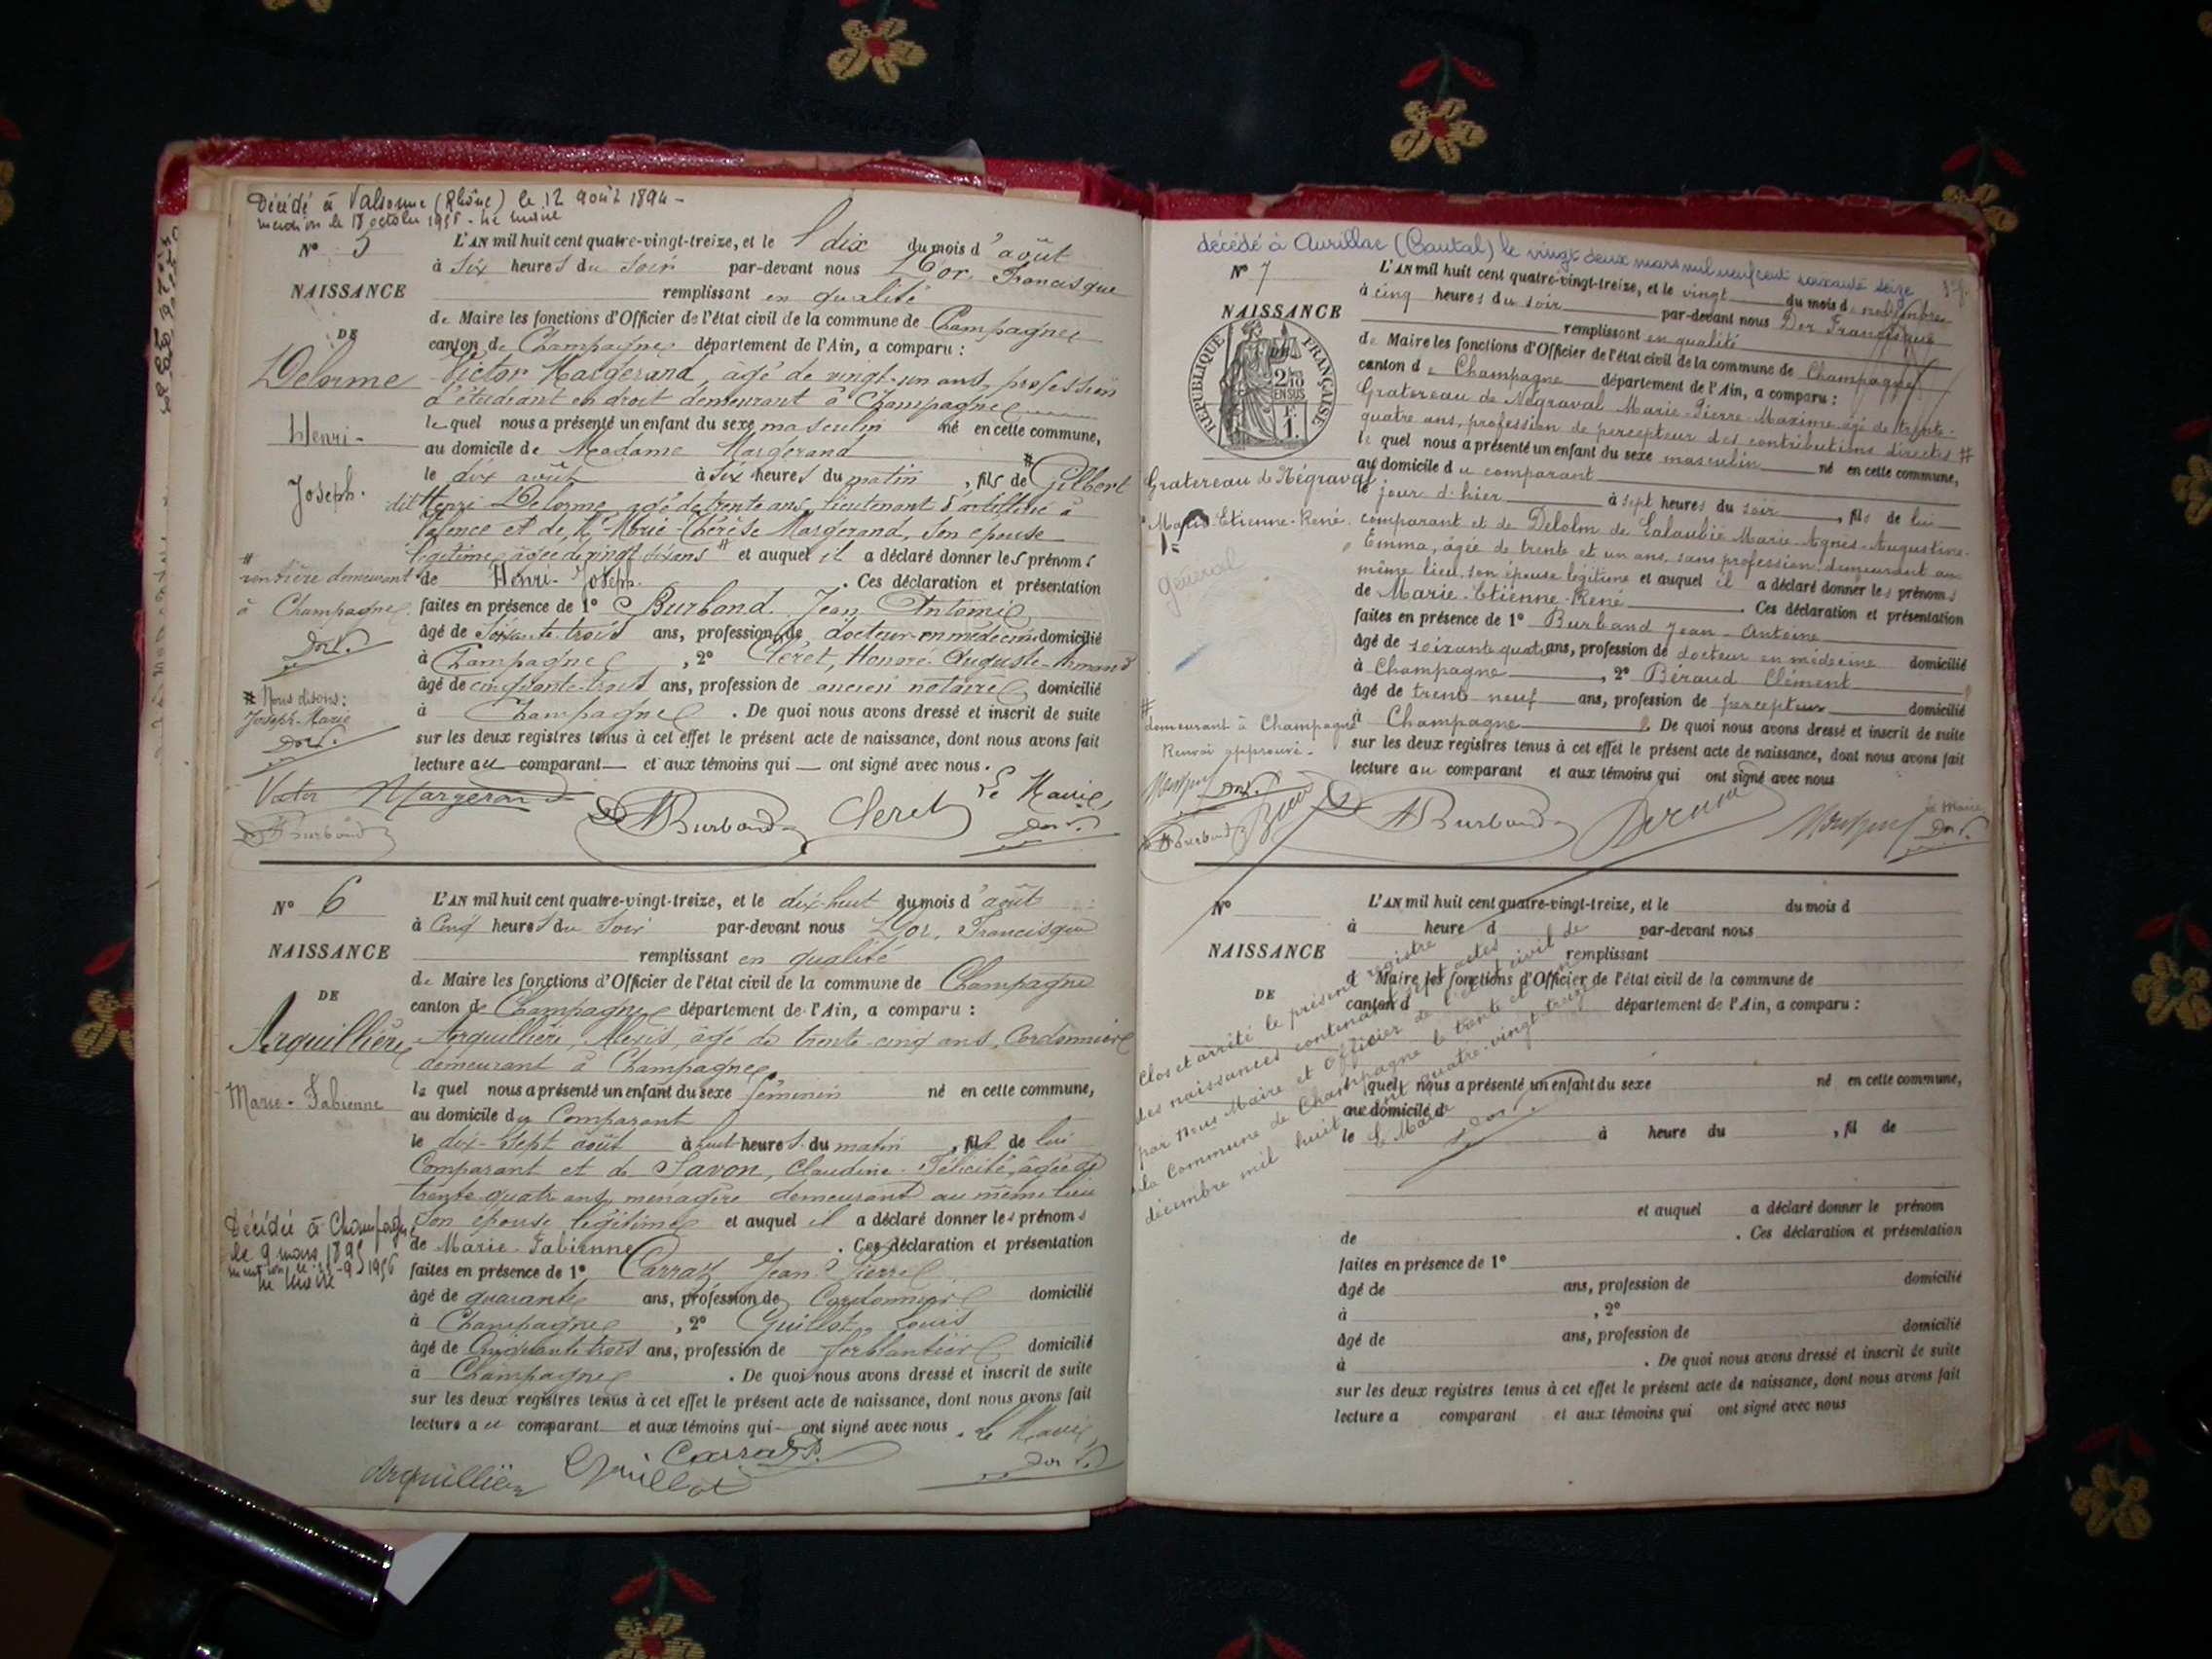 Décédé à Valsonne (Rhône) le 12 août 1894 -
mention le 18 octobre 1956 - le maire
N° 5
L'AN mil huit cent quatre-vingt-treize, et le dix du mois d'août
à six heures du soir par-devant nous Dor, Francisque
NAISSANCE
remplissant en qualité
de Maire les fonctions d'Officier de l'état civil de la commune de Champagne
DE
canton de Champagne département de l'Ain, a comparu :
Delorme
Victor Margerand, âgé de vingt-un ans, profession
d'étudiant en droit demeurant à Champagne
Henri-
le quel nous a présenté un enfant du sexe masculin né en cette commune,
au domicile de Madame Margerand
Joseph.
le dix août à six heures du matin, fils de # Gilbert
dit Henri Delorme, âgé de trente ans, lieutenant d'artillerie à
Valence et de Marie-Thérèse Margerand, son épouse
légitime, âgée de vingt ans # et auquel il a déclaré donner les prénoms
# rentière demeurant
à Champagne.
Dor F.
de Henri-Joseph. Ces déclaration et présentation
faites en présence de 1° Burband Jean Antoine
âgé de soixante-trois ans, profession de docteur en médecine domicilié
à Champagne, 2° Cléret, Honoré-Auguste-Armand
âgé de cinquante-trois ans, profession de ancien notaire domicilié
# Nous disons:
Joseph-Marie
Dor F.
à Champagne. De quoi nous avons dressé et inscrit de suite
sur les deux registres tenus à cet effet le présent acte de naissance, dont nous avons fait
lecture au comparant et aux témoins qui ont signé avec nous.
Le Maire,
Victor Margerand
Burband Cleret
Dor F.
Burband
N° 6
L'AN mil huit cent quatre-vingt-treize, et le dix-huit du mois d'août
à cinq heures du soir par-devant nous Dor, Francisque
NAISSANCE
remplissant en qualité
de Maire les fonctions d'Officier de l'état civil de la commune de Champagne
DE
canton de Champagne département de l'Ain, a comparu :
Arquillière
Arquillière, Alexis, âgé de trente-cinq ans, Cordonnier
demeurant à Champagne,
Marie-Fabienne
le quel nous a présenté un enfant du sexe féminin né en cette commune,
au domicile du Comparant
le dix-sept août à huit heures du matin, fille de lui
Comparant et de Savon, Claudine-Félicité, âgée de
trente-quatre ans, ménagère demeurant au même lieu
son épouse légitime et auquel il a déclaré donner les prénoms
Décédée à Champagne
le 9 mars 1895
le Maire
de Marie-Fabienne. Ces déclaration et présentation
faites en présence de 1° Carraz Jean-Pierre
âgé de quarante ans, profession de Cordonnier domicilié
à Champagne, 2° Guillot, Louis
âgé de Cinquante-trois ans, profession de ferblantier domicilié
à Champagne. De quoi nous avons dressé et inscrit de suite
sur les deux registres tenus à cet effet le présent acte de naissance, dont nous avons fait
lecture au comparant et aux témoins qui ont signé avec nous. Le Maire,
Arquillière Guillot Carraz
Dor F.
décédé à Aurillac (Cantal) le vingt deux mars mil neuf cent soixante seize
N° 7
L'AN mil huit cent quatre-vingt-treize, et le vingt du mois de novembre
à cinq heures du soir par-devant nous Dor Francisque
NAISSANCE
remplissant en qualité
DE
RÉPUBLIQUE FRANÇAISE
2/10 EN SUS
F. 1.
de Maire les fonctions d'Officier de l'état civil de la commune de Champagne
canton de Champagne département de l'Ain, a comparu :
Gratereau de Négraval Marie-Pierre-Maxime âgé de trente-
quatre ans, profession de percepteur des contributions directes #
le quel nous a présenté un enfant du sexe masculin né en cette commune,
au domicile du comparant
Gratereau de Négraval
Marie-Etienne-René.
le jour d'hier à sept heures du soir, fils de lui
comparant et de Delolm de Lalaubie Marie-Agnès-Augustine-
Emma, âgée de trente et un ans, sans profession, demeurant au
même lieu, son épouse légitime et auquel il a déclaré donner les prénoms
général
de Marie-Etienne-René. Ces déclaration et présentation
faites en présence de 1° Burband Jean-Antoine
âgé de soixante quatre ans, profession de docteur en médecine domicilié
à Champagne, 2° Béraud Clément
âgé de trente neuf ans, profession de percepteur domicilié
# demeurant à Champagne
Renvoi approuvé.
à Champagne. De quoi nous avons dressé et inscrit de suite
sur les deux registres tenus à cet effet le présent acte de naissance, dont nous avons fait
lecture au comparant et aux témoins qui ont signé avec nous
Dor F.
Burband
Burband
le Maire
Dor F.
N°
L'AN mil huit cent quatre-vingt-treize, et le du mois d
à heure d par-devant nous
NAISSANCE
remplissant
d Maire les fonctions d'Officier de l'état civil de la commune de
DE
canton d département de l'Ain, a comparu :
l quel nous a présenté un enfant du sexe né en cette commune,
au domicile d
le à heure du , fil de
et auquel a déclaré donner le prénom
de . Ces déclaration et présentation
faites en présence de 1°
âgé de ans, profession de domicilié
à , 2°
âgé de ans, profession de domicilié
à . De quoi nous avons dressé et inscrit de suite
sur les deux registres tenus à cet effet le présent acte de naissance, dont nous avons fait
lecture a comparant et aux témoins qui ont signé avec nous
Clos et arrêté le présent registre
des naissances contenant sept actes
par Nous Maire et Officier de l'état civil de
la Commune de Champagne le trente et un
décembre mil huit cent quatre-vingt-treize
Le Maire
Dor F.